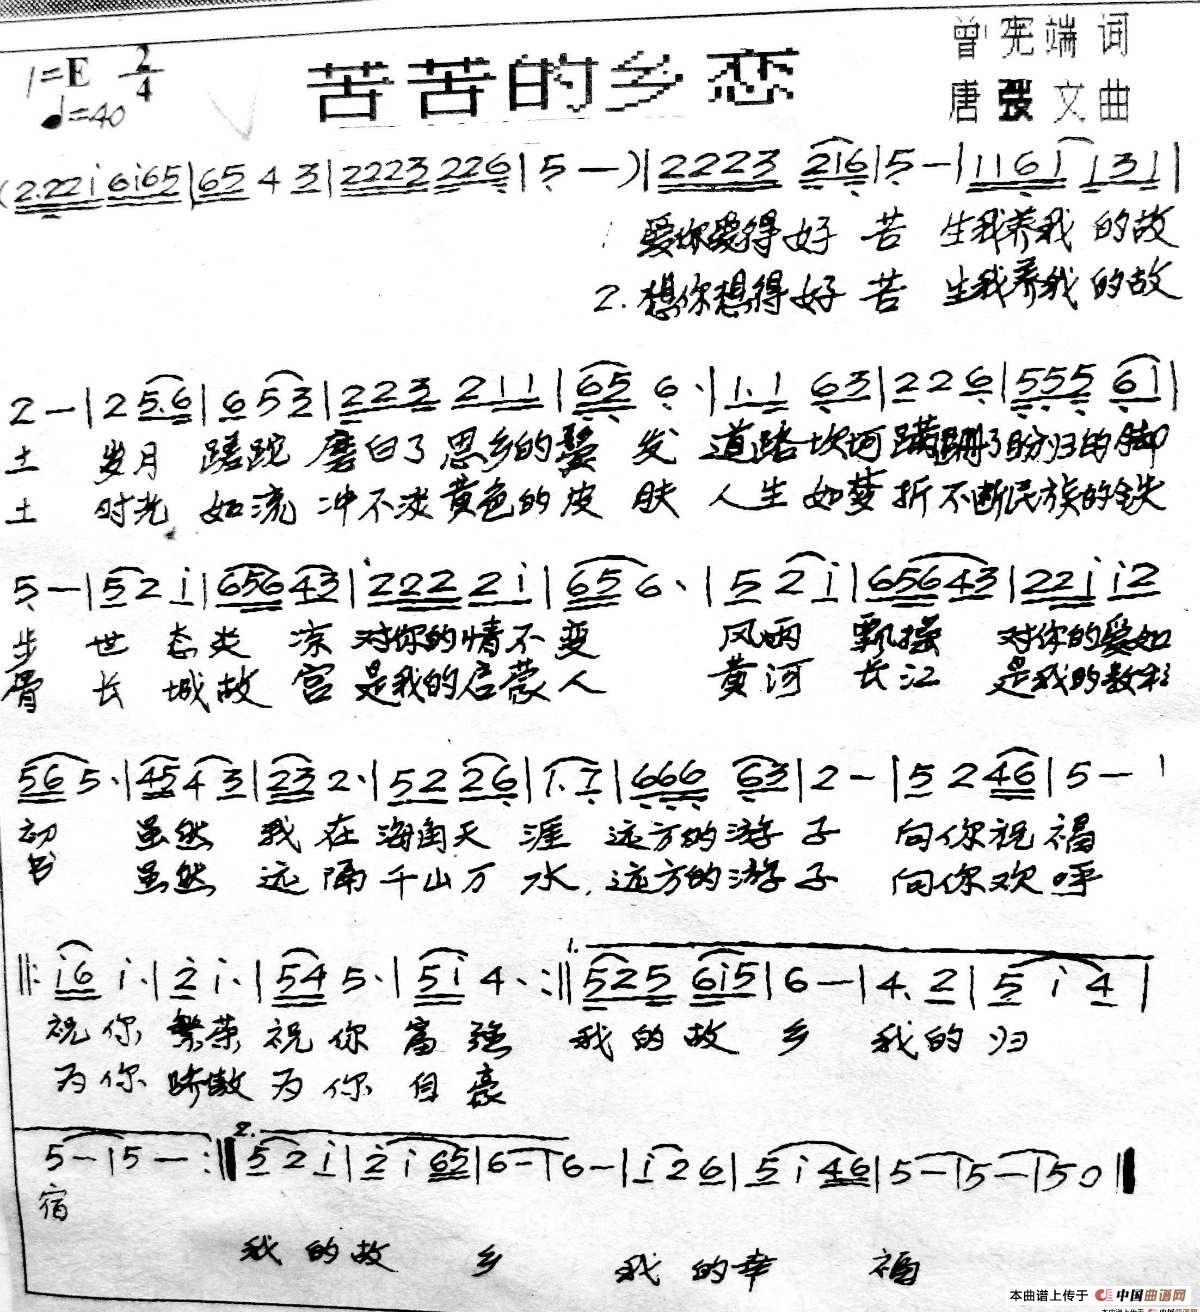 1=E 2/4
♩=40
苦苦的乡恋
曾宪端 词
唐 文曲
(2.22i 6i65|65 4 3|2223 226|5 —)|2223 216|5 —|1161 131|
1 爱你爱得好 苦 生我养我 的故
2. 想你想得好 苦 生我养我 的故
2 —|2 5.6|6 5 3|223 211|65 6.|1.1 63|226|555 61|
土 岁月 蹉跎 磨白了思乡的鬓 发 道路坎坷蹒跚了盼归的脚
土 时光 如流 冲不淡黄色的皮 肤 人生 如梦 折不断民族的铁
5 —|5 2 i|656 43|222 2i|65 6.|5 2 i|656 43|22i i2
步 世 态炎 凉 对你的情不变 风雨 飘摇 对你的爱如
骨 长 城故 宫 是我的启蒙人 黄河 长江 是我的教科
56 5.|45 4 3|23 2.|52 26|1. 1|666 63|2 —|5 2 46|5 —|
初 虽然 我 在 海角天 涯 远方的游 子 向你祝福
书 虽然 远 隔 千山万 水, 远方的游 子 向你欢 呼
‖: i6 i.|2 i.|54 5.|5i 4. :‖ 1. 525 6i5|6 —|4. 2|5 i 4|
祝你 繁荣 祝你 富强 我的故 乡 我的归
为你 骄傲 为你 自豪
5 —|5 — :‖ 2. 5 2 i|2 i 65|6 —|6 —|i 2 6|5 i 46|5 —|5 —|5 0‖
宿
我的故 乡 我的幸 福
本曲谱上传于 中国曲谱网